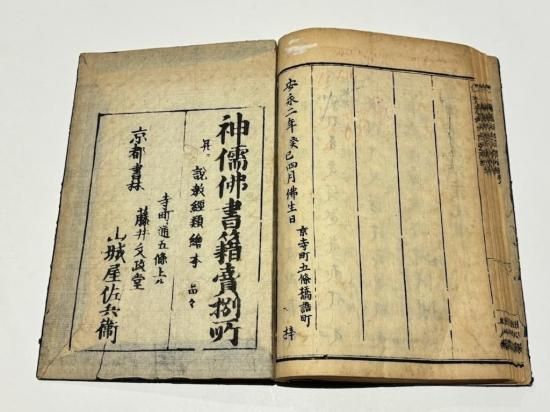 安永二年癸巳四月佛生日 京寺町五條橋詰町
神儒佛書籍賣捌所
説教經類繪本 品々
寺町通五條上ル
京都書林 藤井文政堂
山城屋佐兵衞